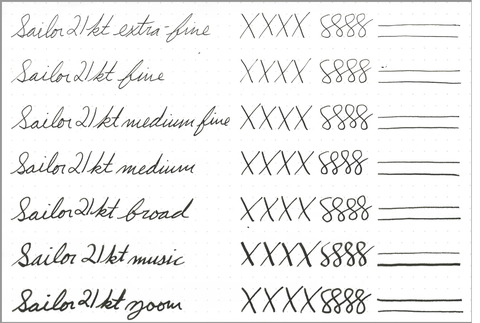 Sailor 21kt extra-fine XXXX 8888
Sailor 21kt fine XXXX 8888
Sailor 21kt medium fine XXXX 8888
Sailor 21kt medium XXXX 8888
Sailor 21kt broad XXXX 8888
Sailor 21kt music XXXX 8888
Sailor 21kt zoom XXXX 8888